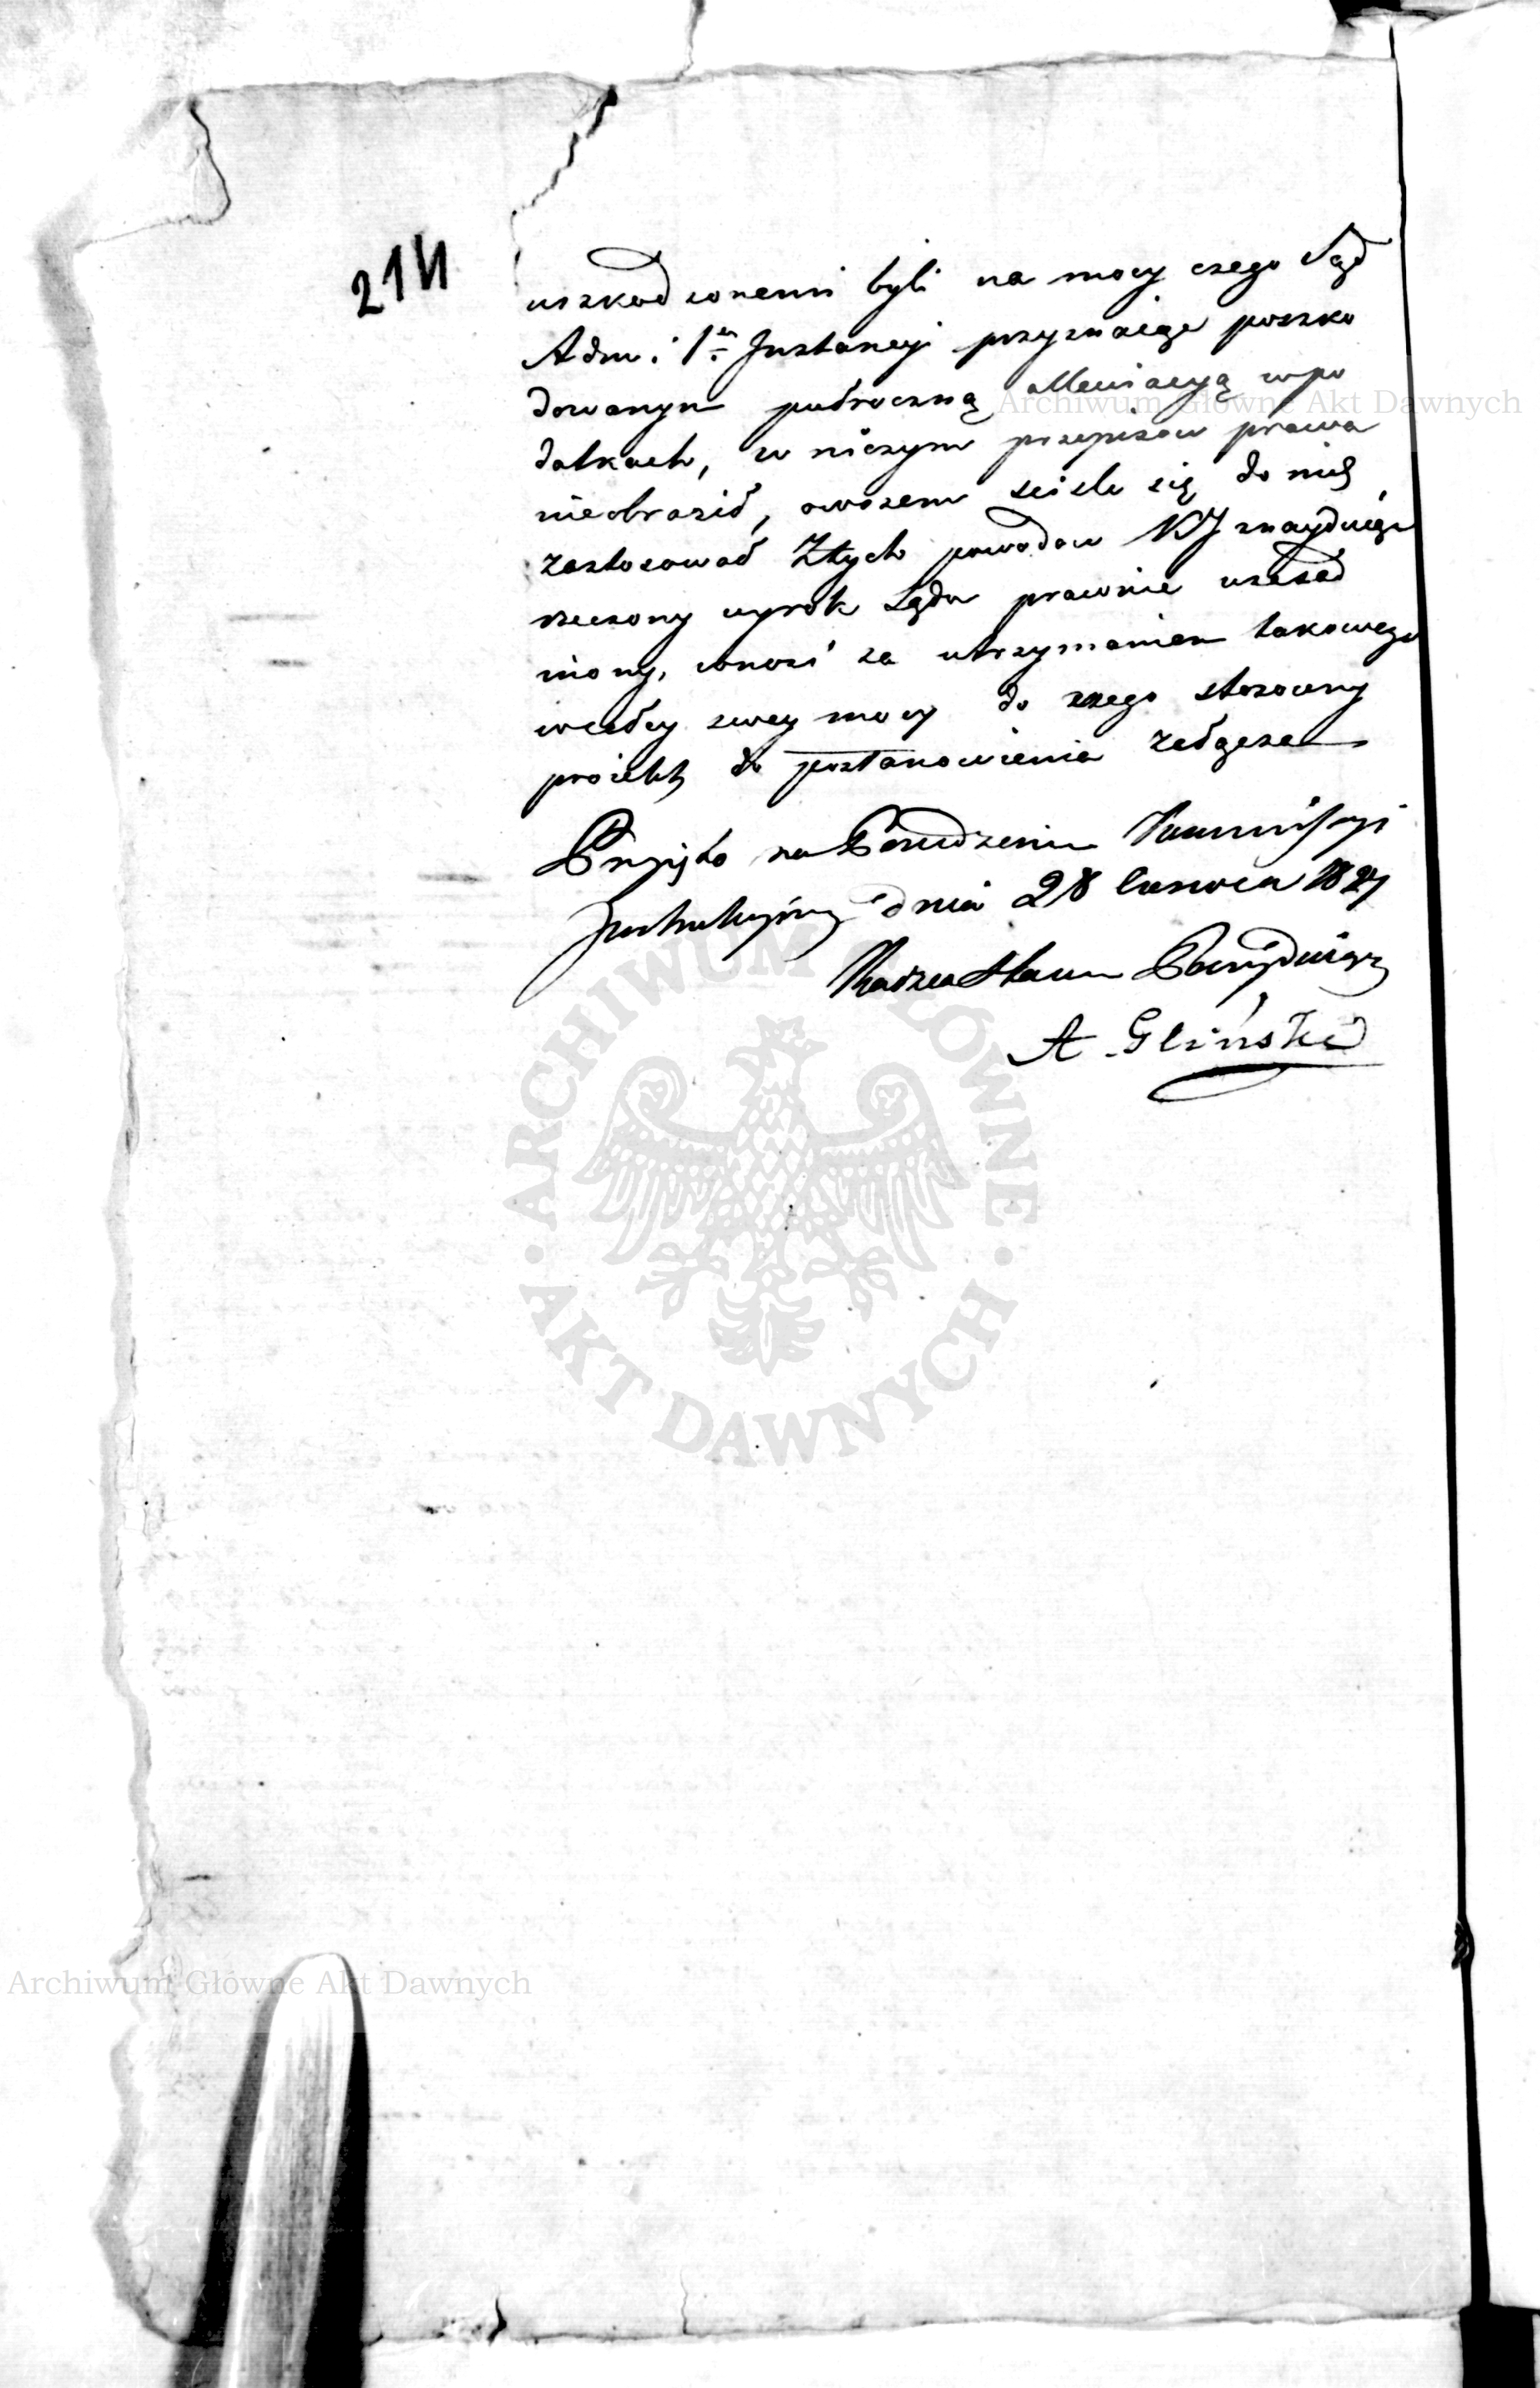 214
uszkodzonemi byli na mocy czego Sąd
Adm: 1ey Instancyi przyznaiąc poszko
dowanym półroczną allewiacyą w po
Archiwum Główne Akt Dawnych
datkach, w niczym przepisow prawa
nieobraził, owszem sciśle się do nich
zastosował Z tych powodow KJ znayduiąc
rzeczony wyrok Sądu prawnie uzasad
niony, wnosi za utrzymaniem takowego
w całey swey mocy do czego stosowny
proiekt do postanowienia załącza
Przyięto na Posiedzeniu Kommissyi
Instrukcyiney dnia 28 Czerwca 1827
Radzca Stanu Prezyduiący
A. Gliński
ARCHIWUM GŁÓWNE
AKT DAWNYCH
Archiwum Główne Akt Dawnych